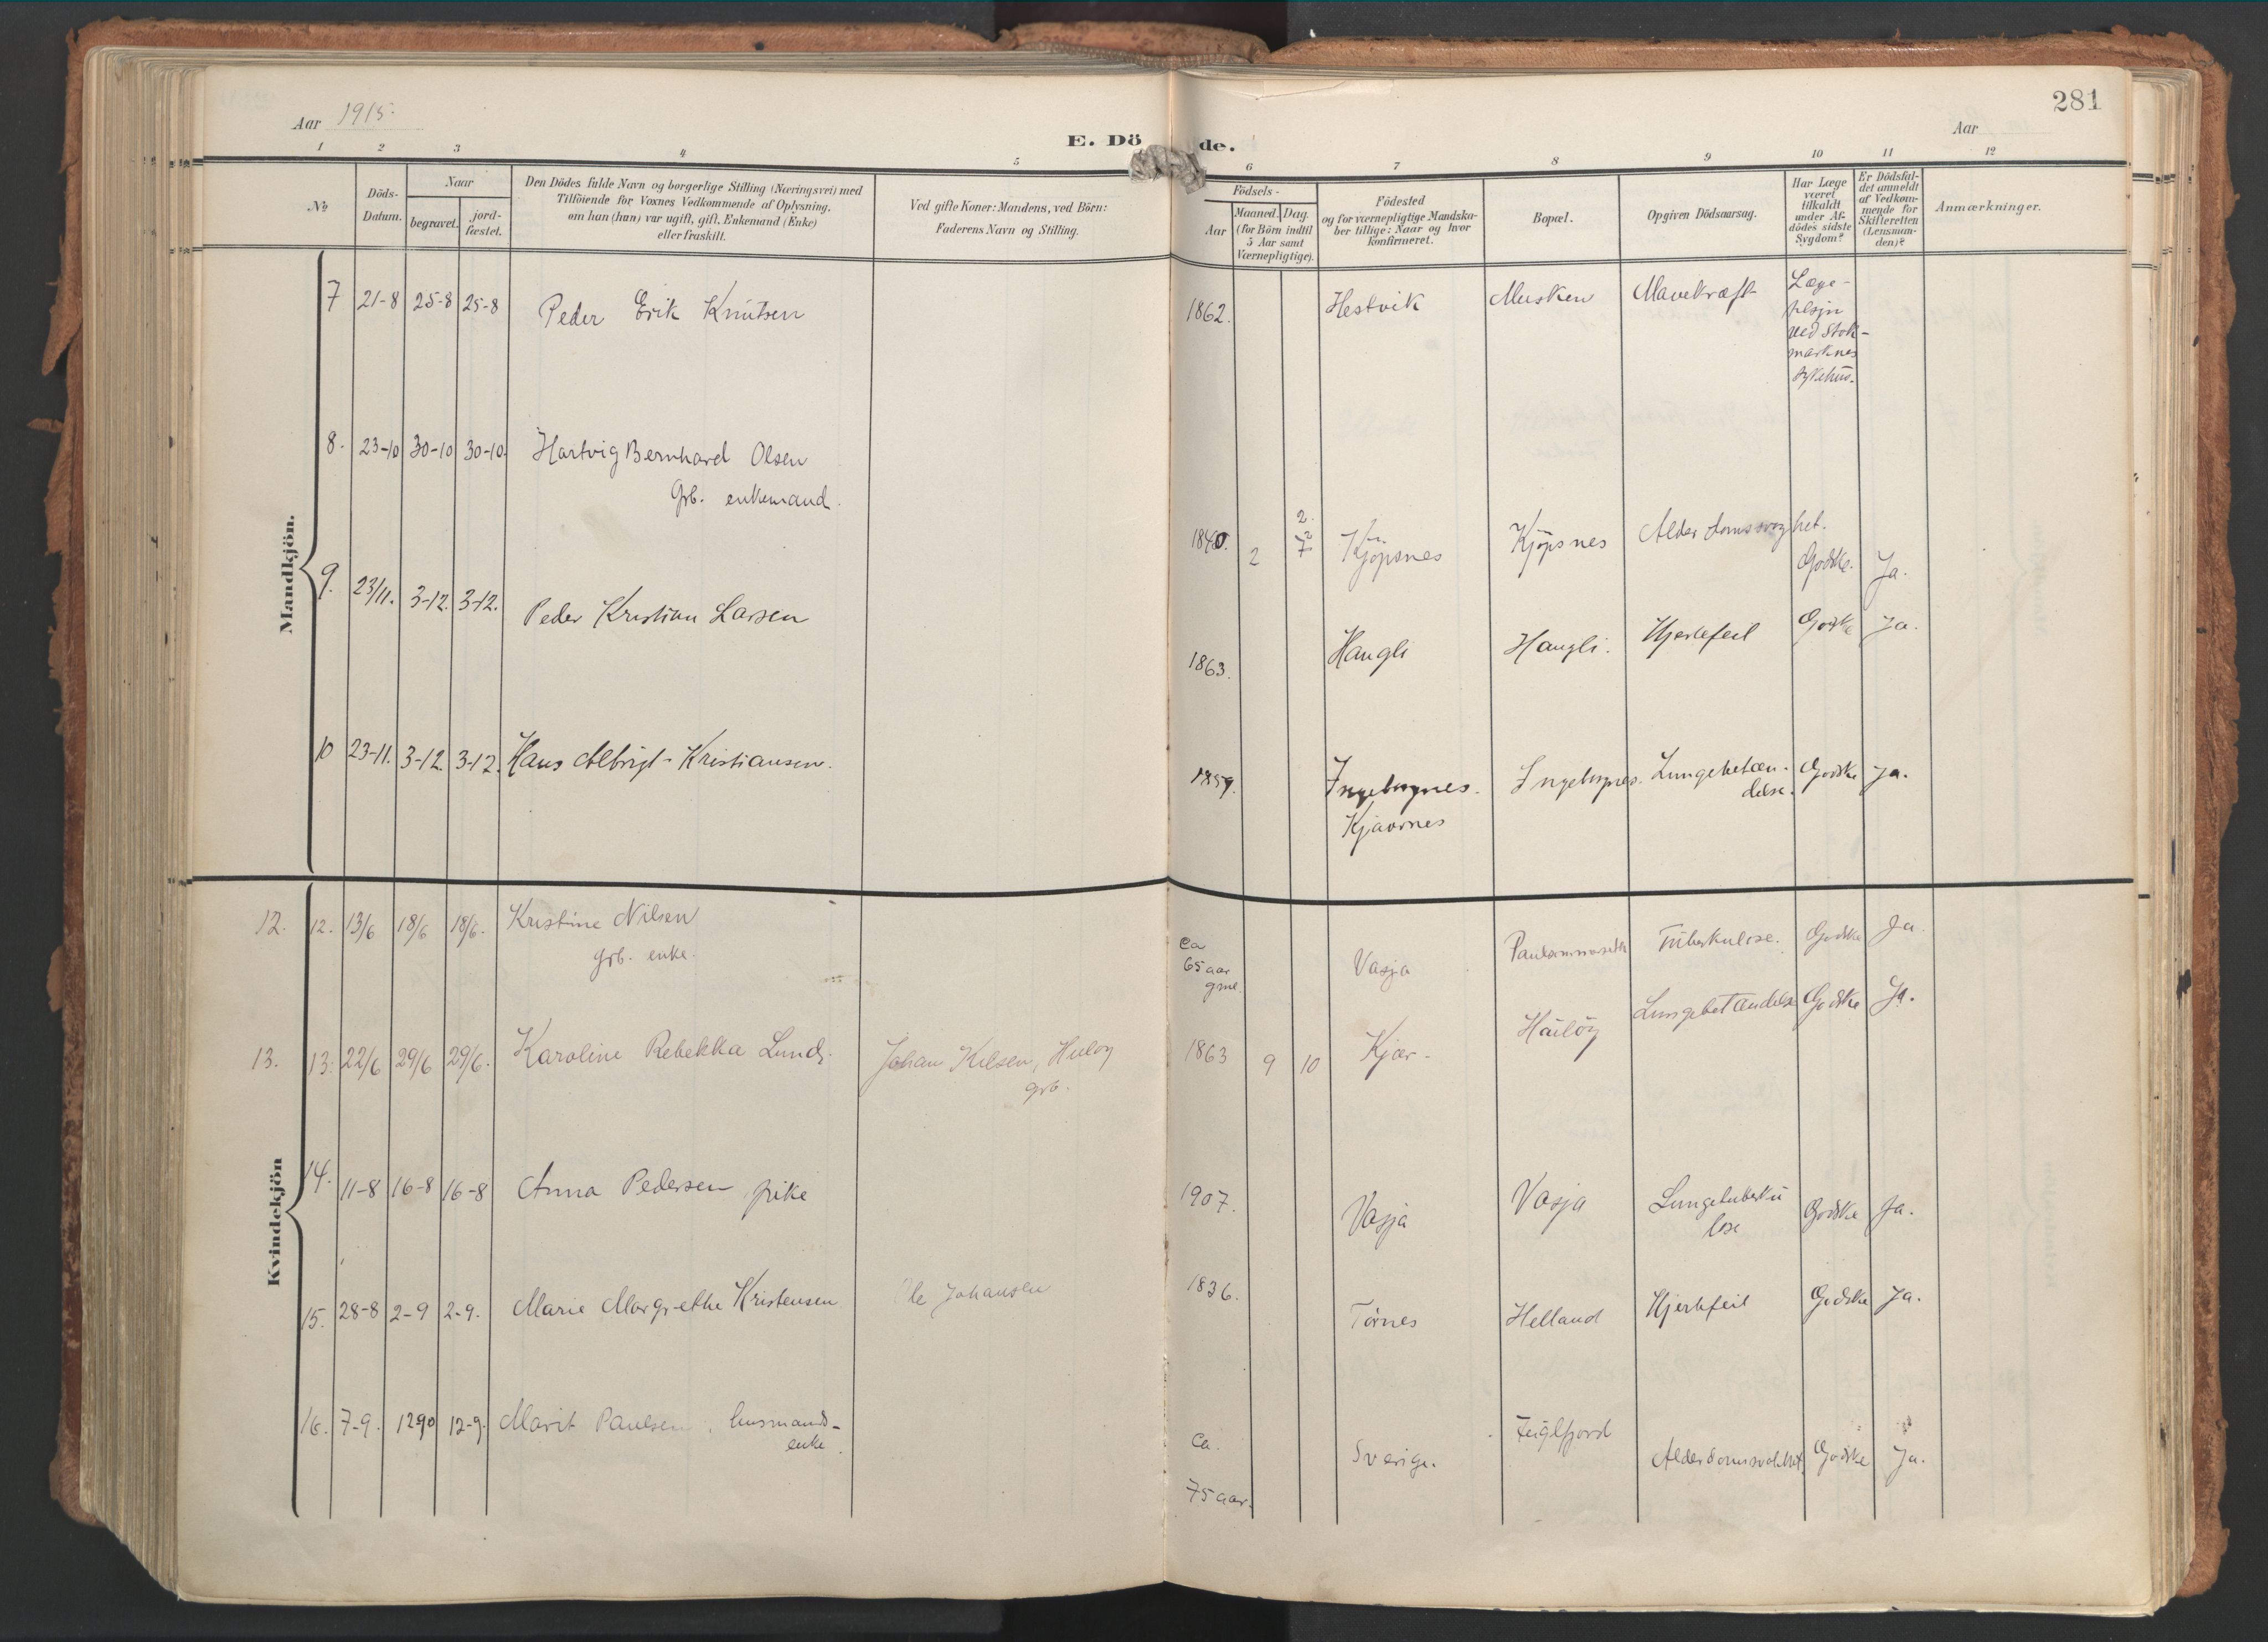 Aar 1915.
E. Dö de.
281
Aar
1 2 3 4 5 6 7 8 9 10 11 12
№
Döds-
Datum.
Naar
begravet.
jord-
fæstet.
Den Dödes fulde Navn og borgerlige Stilling (Næringsvei) med
Tilföiende for Voxnes Vedkommende af Oplysning,
om han (hun) var ugift, gift, Enkemand (Enke)
eller fraskilt.
Ved gifte Koner: Mandens, ved Börn:
Faderens Navn og Stilling.
Födsels-
Aar
Maaned. Dag.
(for Börn indtil
5 Aar samt
Værnepligtige).
Födested
og for værnepligtige Mandska-
ber tillige: Naar og hvor
konfirmeret.
Bopæl.
Opgiven Dödsaarsag.
Har Læge
været
tilkaldt
under Af-
dödes sidste
Sygdom?
Er Dödsfal-
det anmeldt
af Vedkom-
mende for
Skifteretten
(Lensman-
den)?
Anmærkninger.
Mandkjön.
7 21-8 25-8 25-8 Peder Erik Knutsen 1862. Hestvik Musken Mavekræft Læge-
tilsyn
ved Stok-
marknes
sykehus.
8. 23-10 30-10 30-10. Hartvig Bernhard Olsen
Grb. enkemand.
1840. 2 Kjöpsnes Kjöpsnes Alderdomssvaghet.
Godske. Ja.
9. 23/11. 3-12. 3-12. Peder Kristian Larsen
1863. Haugli Haugli. Hjertefeil Godske Ja.
10 23-11. 3-12. 3-12. Hans Albrigt Kristiansen.
1859. Ingeborgnes. Ingeborgnes. Lungebetæn-
delse. Godske Ja.
Kjaarnes
Kvindekjön
12. 12. 13/6 18/6 18/6. Kristine Nilsen
grb. enke.
Ca
65 aar
gml. Vasja Tuberkulose. Godske Ja.
13. 13. 22/6 29/6 29/6. Karoline Rebekka Lund. Johan Kilsen, Huløy
grb.
1863 9 10 Kjær. Hailöy Lungebetændelse Godske Ja.
14. 11-8 16-8 16-8 Anna Pedersen pike
1907. Vasja Vasja Lungetuberku
lose Godske Ja.
15. 28-8 2-9 2-9. Marie Margrethe Kristensen Ole Johansen
1836. Törnes Helland Hjertefeil Godske Ja.
16. 7-9. 1290 12-9. Marit Paulsen, husmands-
enke.
Ca.
75 aar. Sverige. Fuglfjord Alderdomssvakhet. Godske Ja.